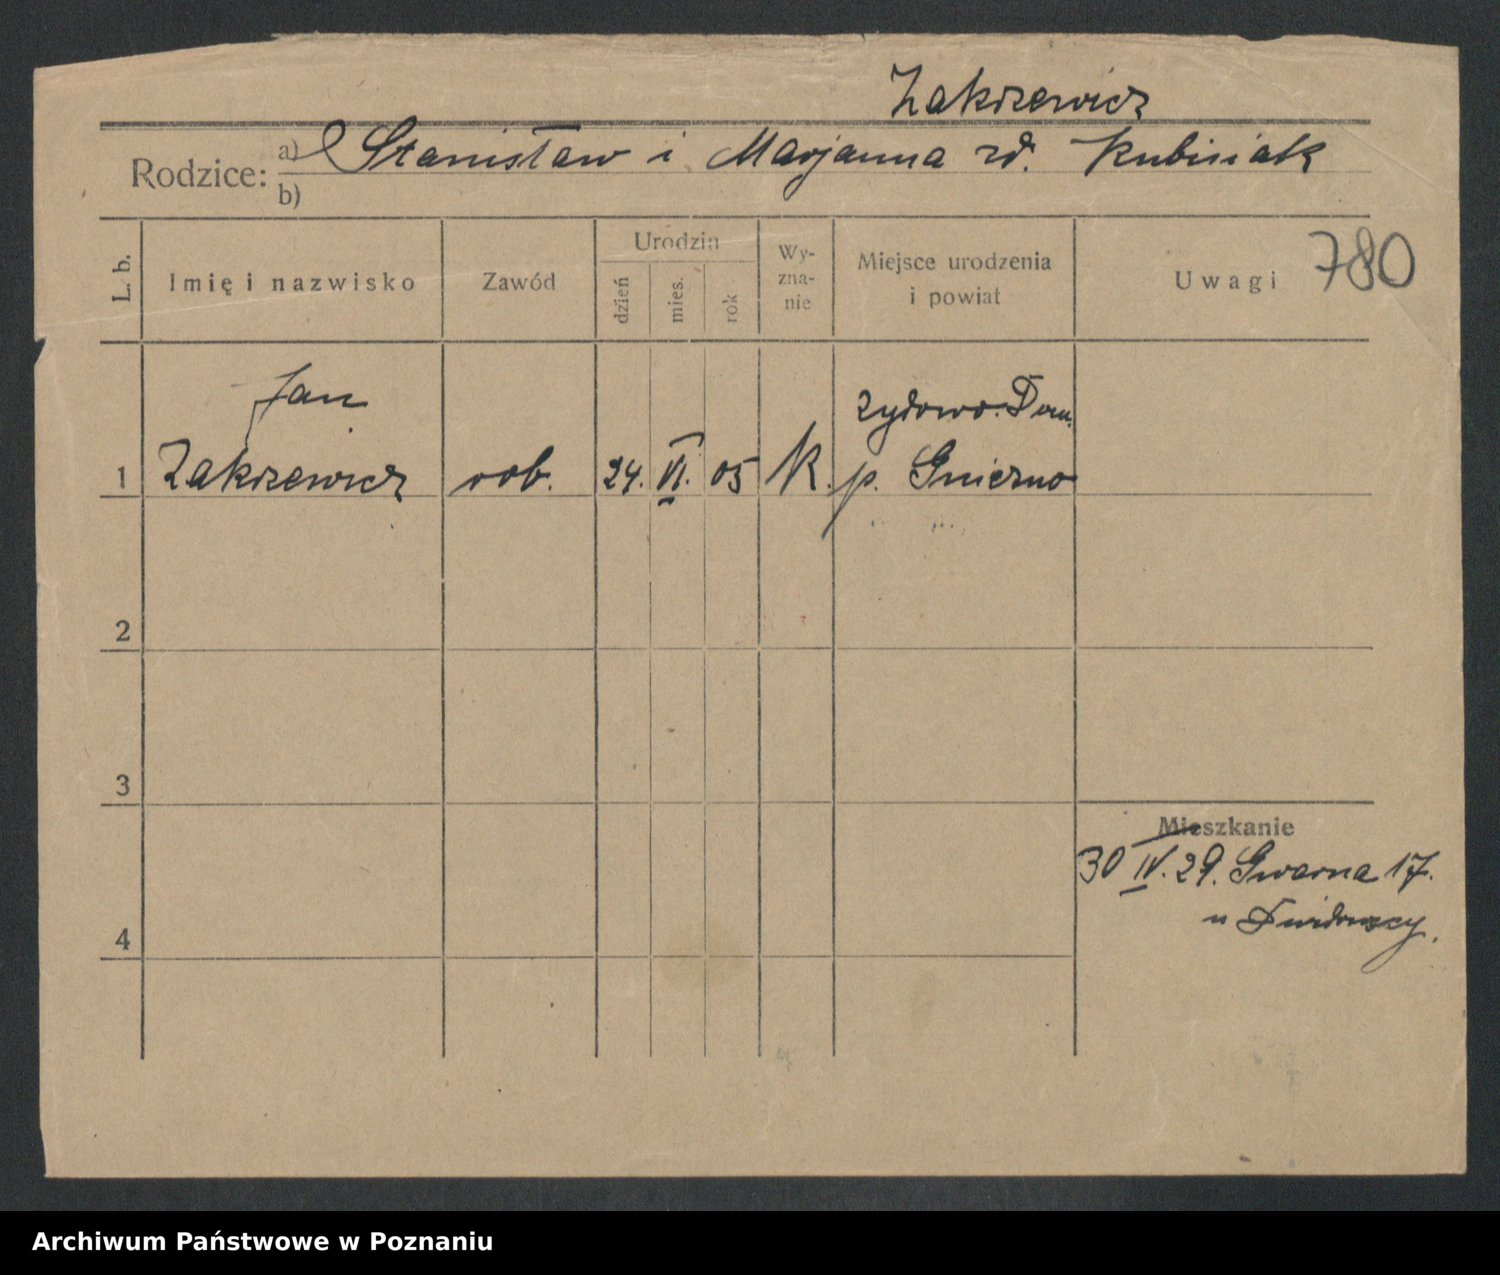 Zakrzewicz
Rodzice: a) Stanisław i Marjanna zd. Kubisiak
b)
L. b.
Imię i nazwisko
Zawód
Urodzin
dzień
mies.
rok
Wy-
zna-
nie
Miejsce urodzenia
i powiat
Uwagi 780
Jan
Zakrzewicz
1
rob.
24. VI. 05
K.
Żydowo. Dom.
p. Gniezno
2
3
4
Mieszkanie
30 IV. 29. Gwarna 17.
u
Archiwum Państwowe w Poznaniu